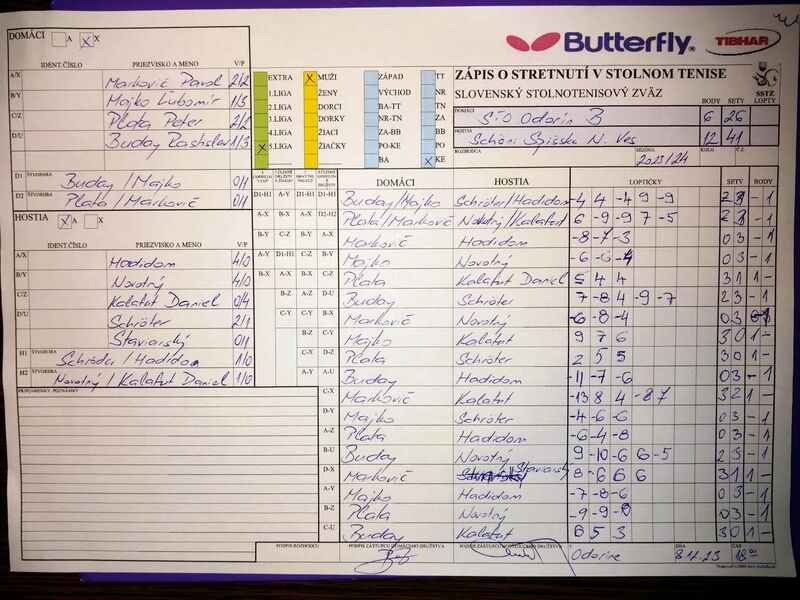 Butterfly
TIBHAR
DOMÁCI A X
IDENT.ČÍSLO PRIEZVISKO A MENO V/P
A/X Markovič Pavol 2/2
B/Y Majko Ľubomír 1/3
C/Z Plata Peter 2/2
D/U Buday Rastislav 1/3
D1 ŠTVORHRA Buday / Majko 0/1
D2 ŠTVORHRA Plata / Markovič 0/1
HOSTIA A X
IDENT.ČÍSLO PRIEZVISKO A MENO V/P
A/X Hadidom 4/0
B/Y Novotný 4/0
C/Z Kalafut Daniel 0/4
D/U Schröter 2/1
Staviarský 0/1
H1 ŠTVORHRA / Hadidom 1/0
H2 ŠTVORHRA Novotný / Kalafut Daniel 1/0
PRIPOMIENKY, POZNÁMKY
EXTRA X MUŽI ZÁPAD TT
1.LIGA ŽENY VÝCHOD NR
2.LIGA DORCI BA-TT TN
3.LIGA DORKY NR-TN ZA
4.LIGA ŽIACI ZA-BB BB
X 5.LIGA ŽIAČKY PO-KE PO
BA X KE
ZÁPIS O STRETNUTÍ V STOLNOM TENISE
SLOVENSKÝ STOLNOTENISOVÝ ZVÄZ
SSTZ
BODY SETY LOPTY
DOMÁCI STO Odorín B 6 26
HOSTIA Schöni Spišská N. Ves 12 41
ROZHODCA SEZÓNA 2023/24 KOLO Č.Z.
DOMÁCI HOSTIA LOPTIČKY SETY BODY
D1-H1 A-Y D1-H1 D1-H1 Buday/Majko Schröter/Hadidom -4 4 -4 9 -9 2 3 - 1
A-X B-X A-X D2-H2 Plata/Markovič Novotný/Kalafut 6 -9 -9 7 -5 2 3 - 1
B-Y C-Z B-Y A-X Markovič Hadidom -8 -7 -3 0 3 - 1
A-Y D1-H1 C-Z B-Y Majko Novotný -6 -6 -4 0 3 - 1
B-X A-X B-X C-Z Plata Kalafut Daniel 5 4 4 3 1 1 -
B-Z A-Z D-U Buday Schröter 7 -8 4 -9 -7 2 3 - 1
C-Y C-Y B-X Markovič Novotný -6 -8 -4 0 3
B-Z C-Y Majko Kalafut 9 7 6 3 0 1 -
C-X D-Z Plata Schröter 2 5 5 3 0 1 -
A-Y A-U Buday Hadidom -11 -7 -6 0 3 - 1
C-X Markovič Kalafut -13 8 4 -8 7 3 2 1 -
D-Y Majko Schröter -4 -6 -6 0 3 - 1
A-Z Plata Hadidom -6 -4 -8 0 3 - 1
B-U Buday Novotný 9 -10 -6 6 -5 2 3 - 1
D-X Markovič Staviarský 8 -6 6 6 3 1 1 -
A-Y Majko Hadidom -7 -8 -6 0 3 - 1
B-Z Plata Novotný -9 -9 -8 0 3 - 1
C-U Buday Kalafut 6 5 3 3 0 1 -
PODPIS ROZHODCU PODPIS ZÁSTUPCU DOMÁCEHO DRUŽSTVA PODPIS ZÁSTUPCU HOSŤUJÚCEHO DRUŽSTVA V Odoríne DŇA 8.12.23 ČAS 18 00